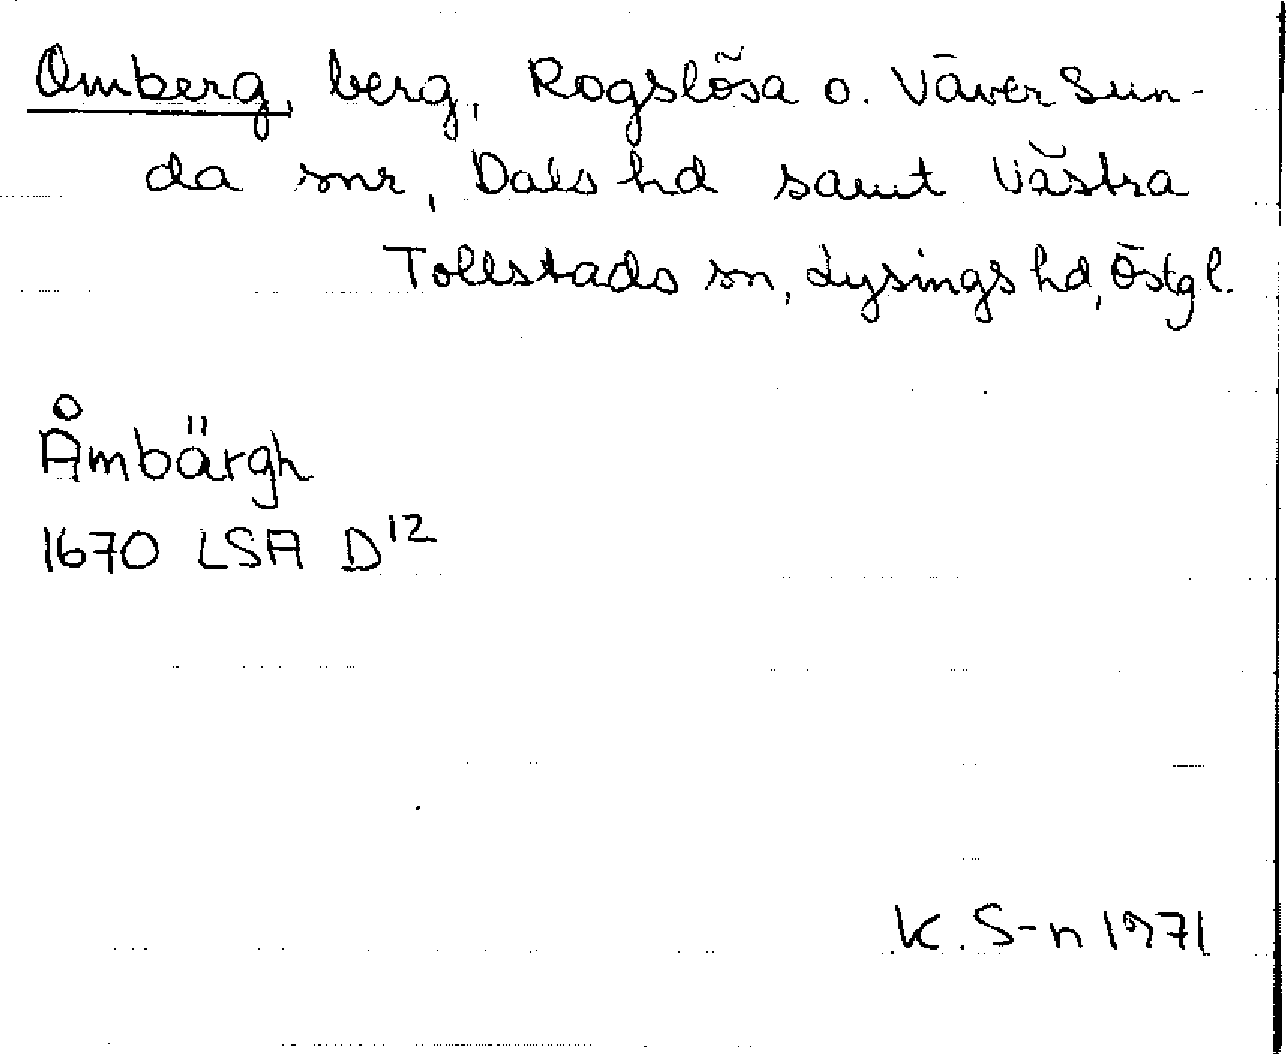 Omberg, berg, Rogslösa o. Väversun-
da snr, Dals hd samt Västra
Tollstads sn, Lysings hd, Östgl.
Åmbärgh
1670 LSA D12
K. S-n 1971